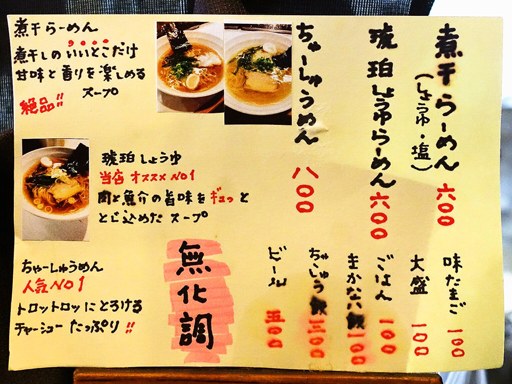 煮干らーめん
(しょうゆ・塩)
六〇〇
琥珀しょうゆらーめん
六〇〇
ちゃーしゅうめん
八〇〇
味たまご 100
大盛 100
ごはん 100
まかない飯 100
ちゃーしゅう飯 三〇〇
ビール 五〇〇
煮干らーめん
煮干しのいいとこだけ
甘味と香りを楽しめる
スープ
絶品!!
琥珀しょうゆ
当店オススメNO1
肉と魚介の旨味をギュっと
とじ込めたスープ
ちゃーしゅうめん
人気NO1
トロットロッにとろける
チャーシューたっぷり!!
無化調